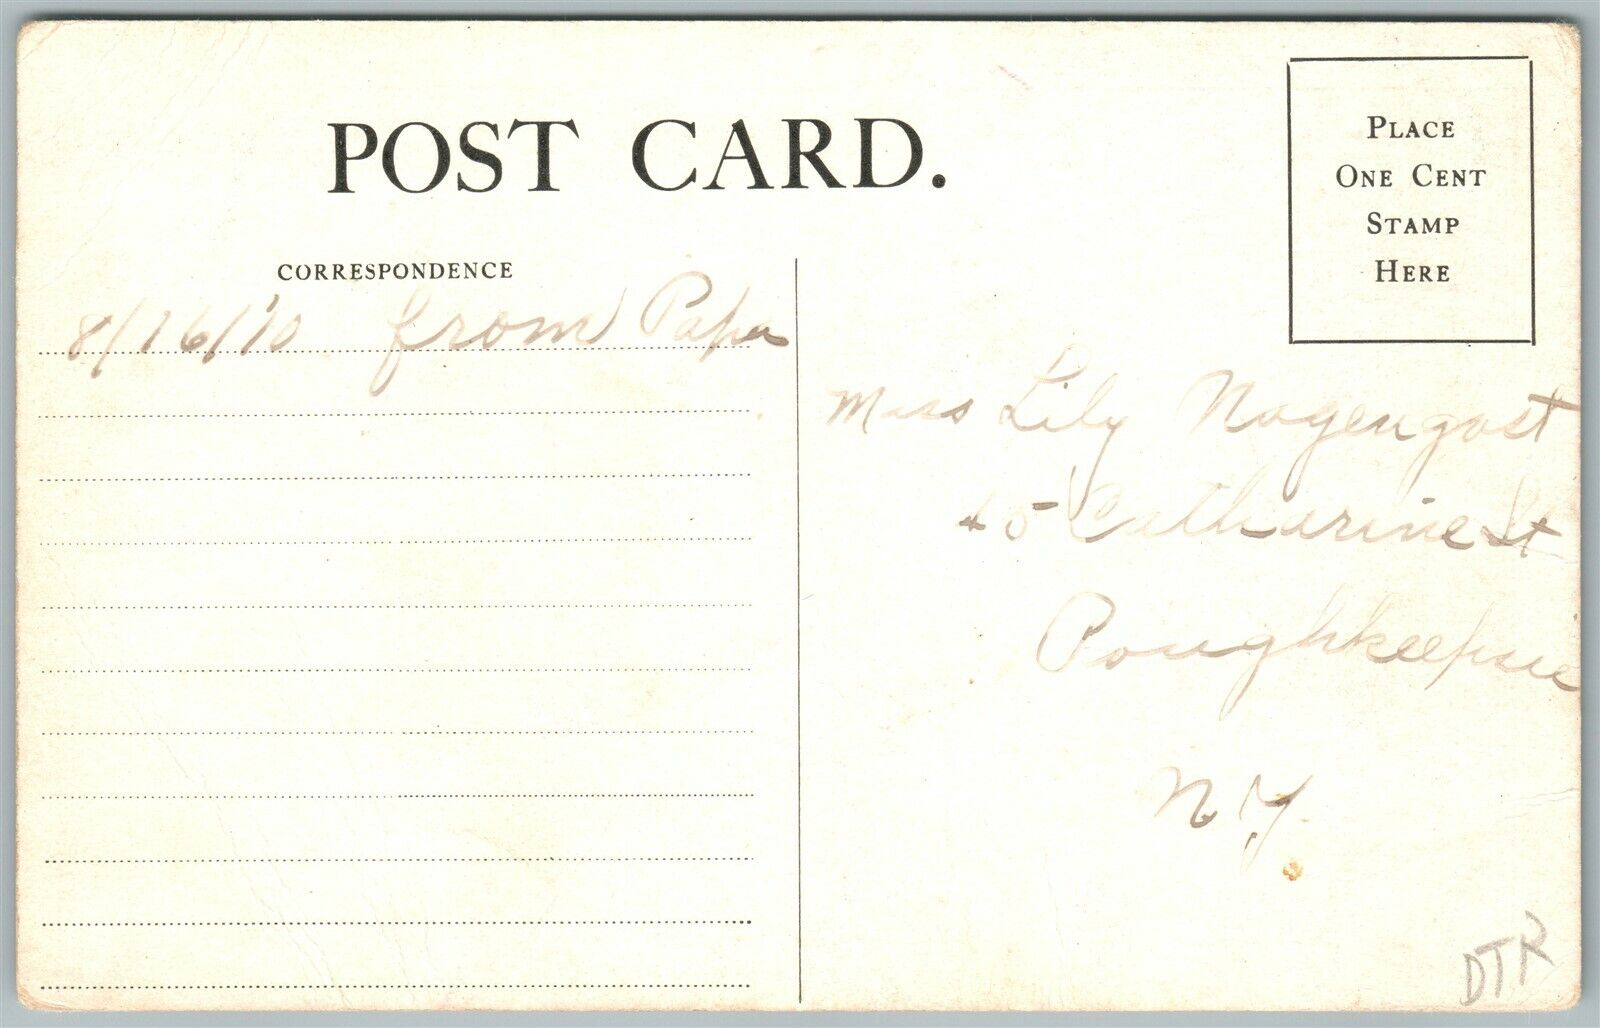 POST CARD.
PLACE
ONE CENT
STAMP
HERE
CORRESPONDENCE
8/16/'10 from Papa
Miss Lily Nagengast
45 Catharine St
Poughkeepsie
N Y
DTR